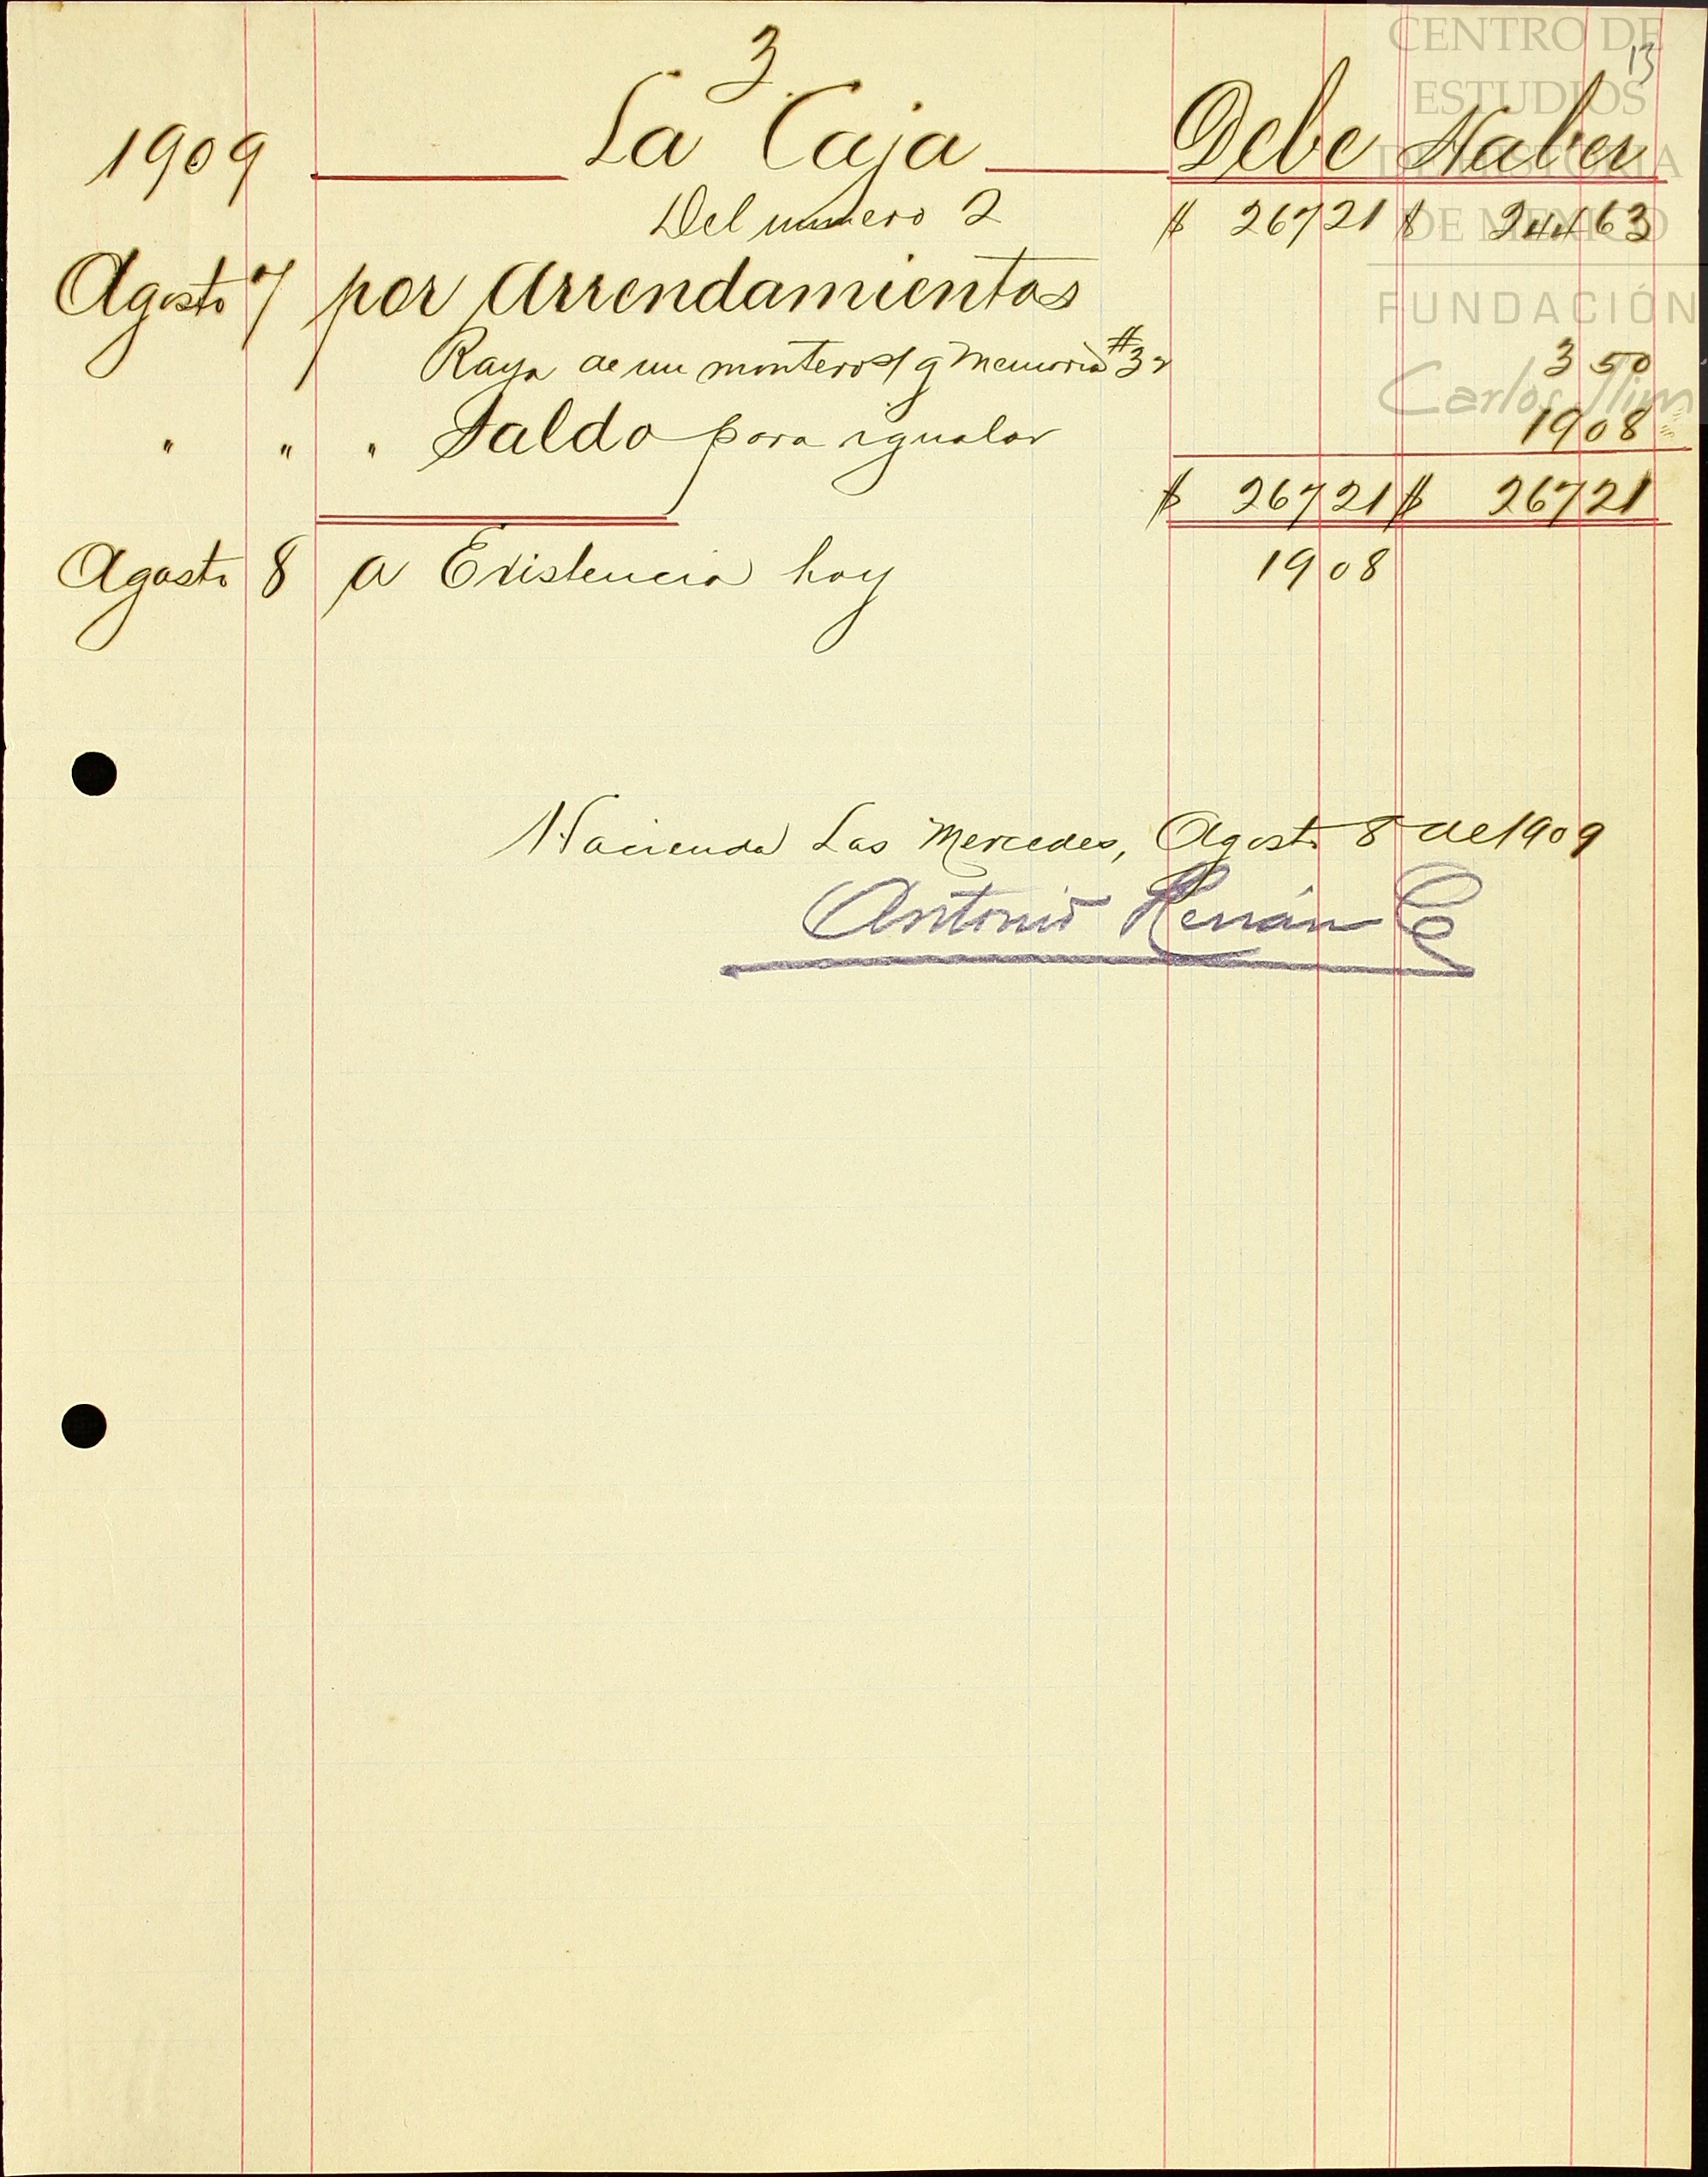 3
13
1909 La Caja Debe Haber
Del numero 2 $ 267 21 $ 244 63
Agosto 7 por Arrendamientos
Raya de un montero s/g Memoria #32 3 50
" " " Saldo para igualar 19 08
$ 267 21 $ 267 21
Agosto 8 a Existencia hoy 19 08
Hacienda Las Mercedes, Agosto 8 de 1909
Antonio Herrán C
CENTRO DE
ESTUDIOS
DE HISTORIA
DE MEXICO
FUNDACIÓN
Carlos Slim